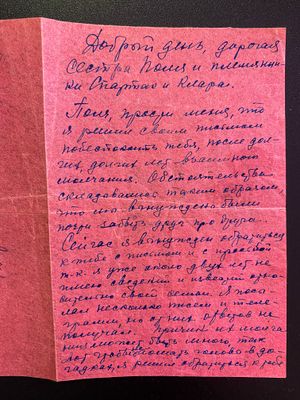 Добрый день, дорогая
сестра Поля и племянни-
ки Спартак и Клара.
Поля, прости меня, что
я решил своим письмом
побеспокоить тебя, после дол-
гих, долгих лет взаимного
молчания. Обстоятельства
складывались таким образом,
что мы вынуждены были
почти забыть друг про друга.
Сейчас я вынужден обратиться
к тебе с письмом и с просьбой
т.к. я уже около двух лет не
имею сведений и известий относ
ительно своей семьи. Я посы
лал несколько писем и теле-
грамм, но от них ответов не
получил. Причин их молча-
ния может быть много, так
вот чтобы не ломать голову в до-
гадках, я решил обратиться к тебе